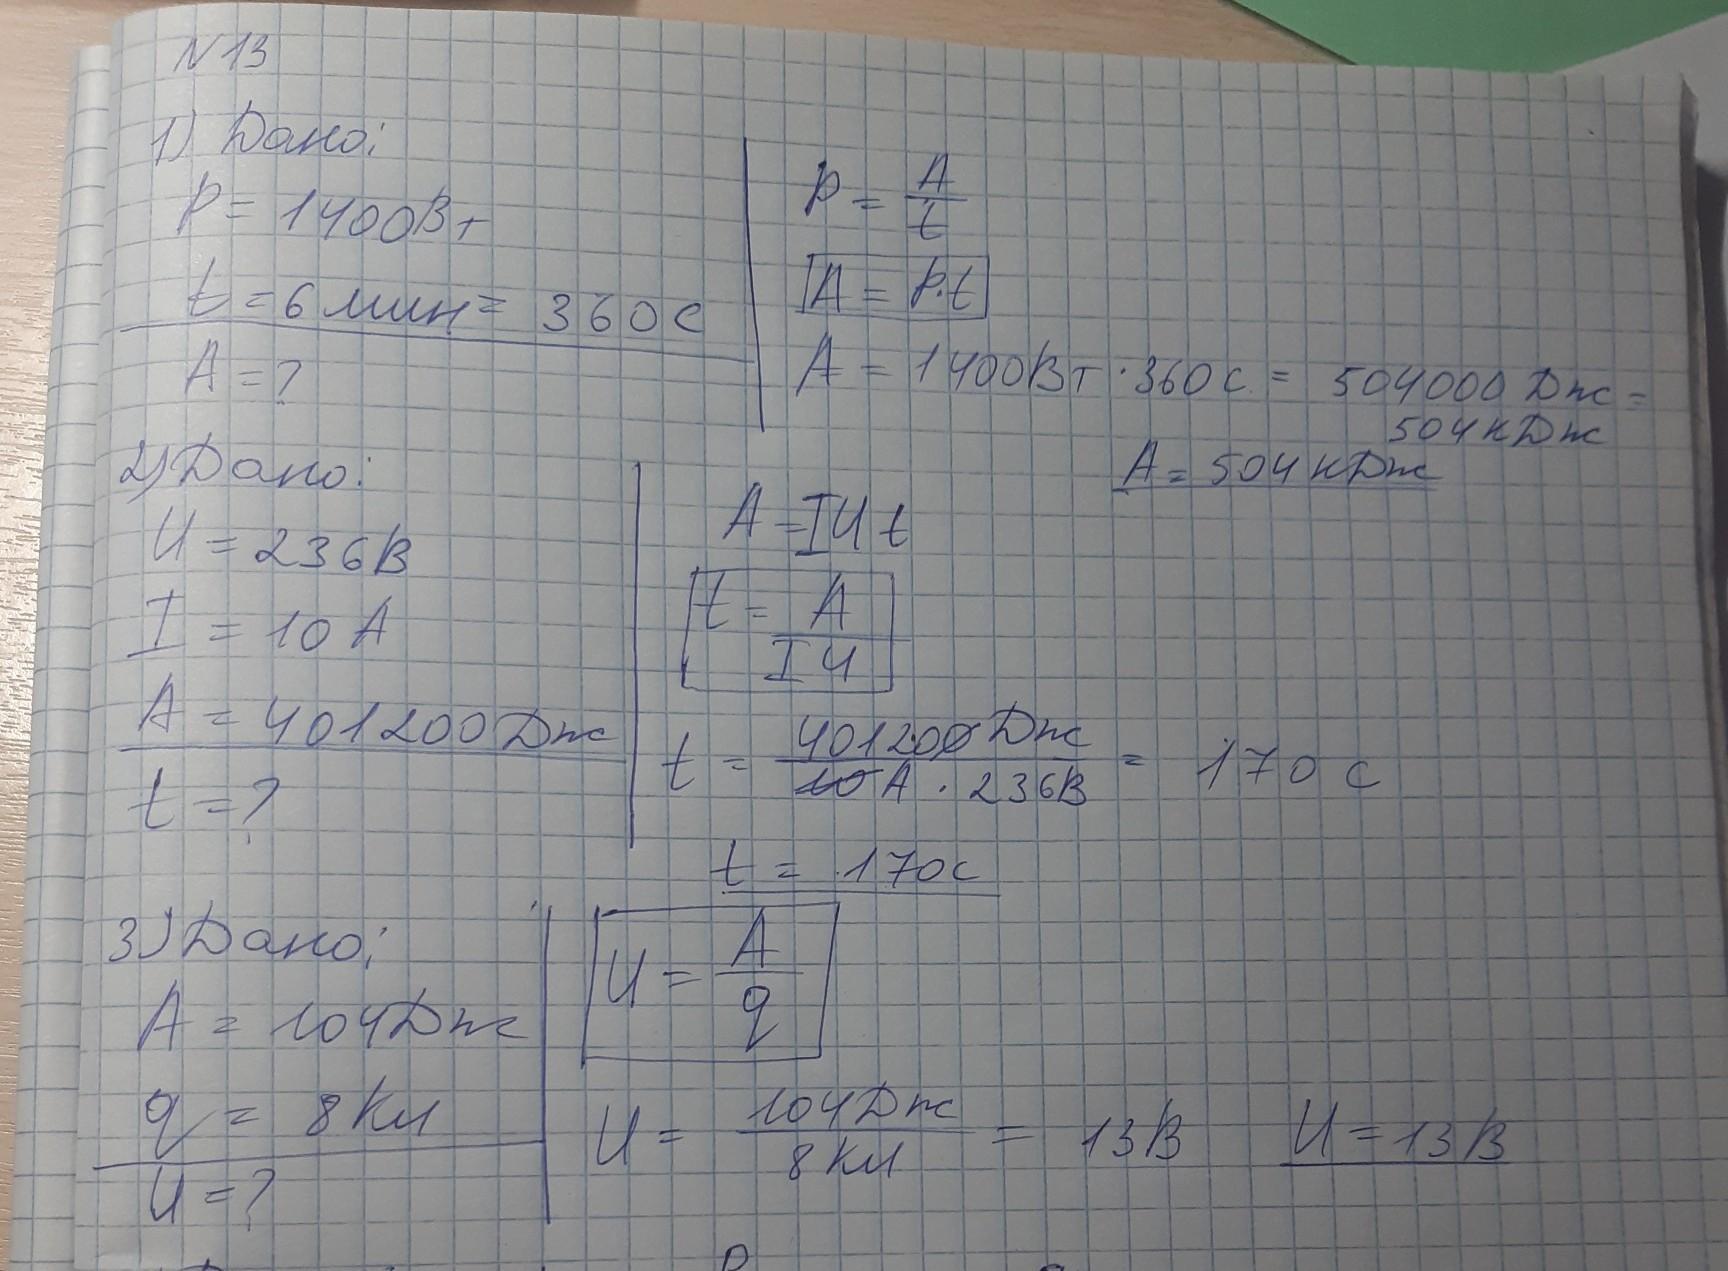 N13
1) Дано:
P = 1400Вт
t = 6 мин = 360 с
A = ?
P = A/t
A = P·t
A = 1400Вт · 360 с = 504000 Дж =
504 кДж
A = 504 кДж
2) Дано:
U = 236В
I = 10 А
A = 401200 Дж
t = ?
A = IUt
t = A/IU
t = 401200 Дж/10 А · 236В = 170 с
t = 170с
3) Дано:
A = 104Дж
q = 8 Кл
U = ?
U = A/q
U = 104 Дж/8 Кл = 13 В U = 13 В